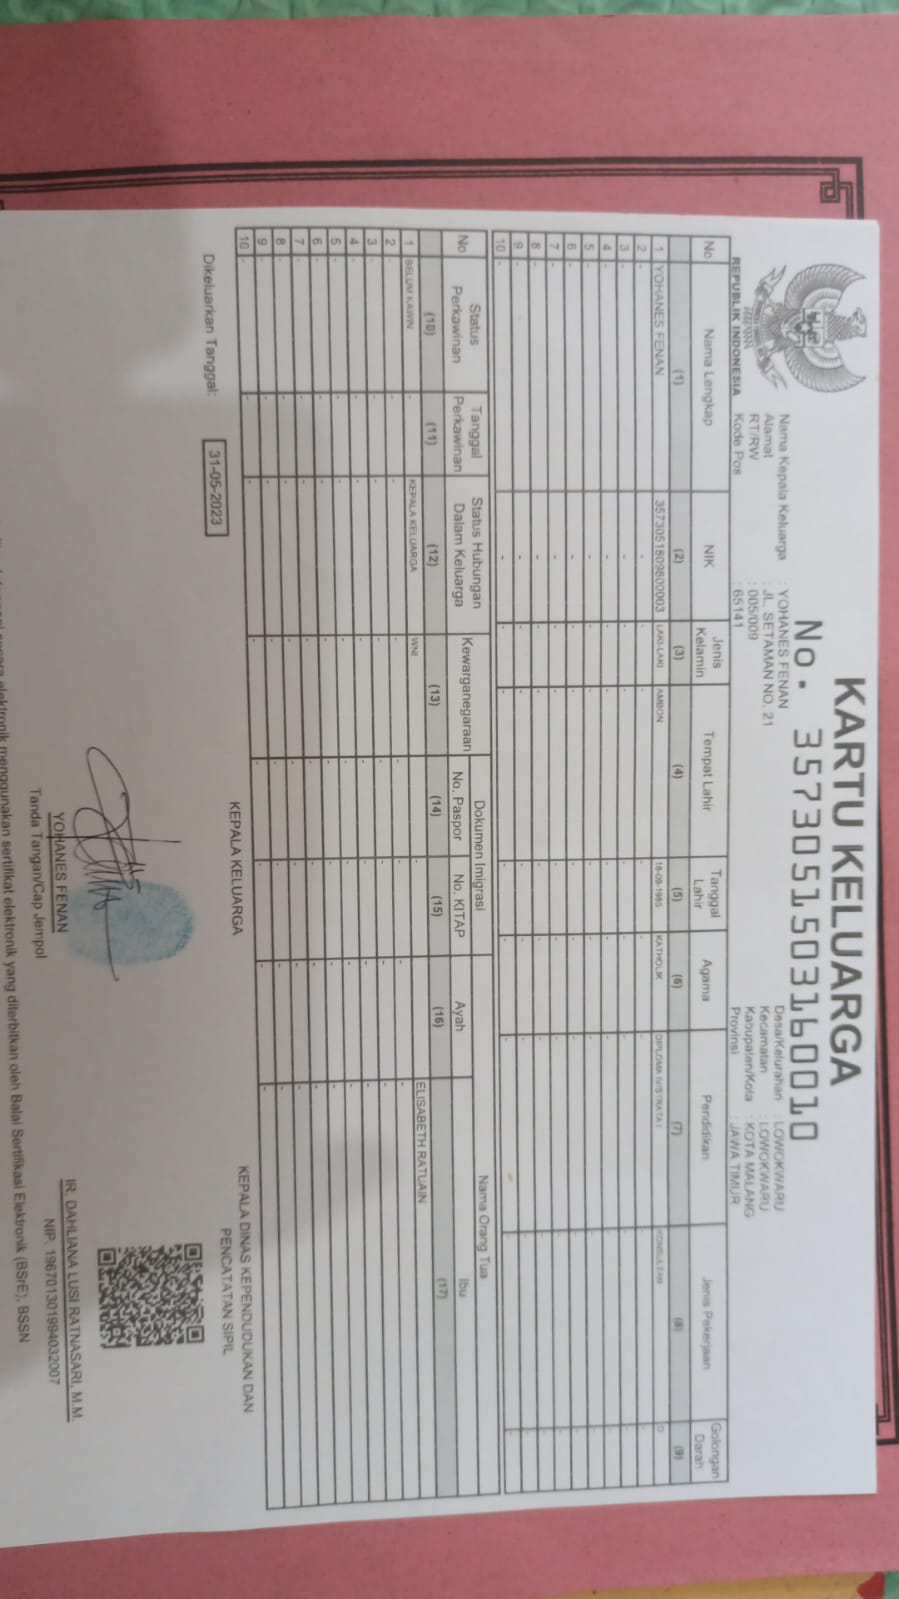 KARTU KELUARGA
No. 3573051503160010
REPUBLIK INDONESIA
Nama Kepala Keluarga : YOHANES FENAN
Alamat : JL. SETAMAN NO. 21
RT/RW : 005/009
Kode Pos : 65141
Desa/Kelurahan : LOWOKWARU
Kecamatan : LOWOKWARU
Kabupaten/Kota : KOTA MALANG
Provinsi : JAWA TIMUR
No Nama Lengkap NIK Jenis Kelamin Tempat Lahir Tanggal Lahir Agama Pendidikan Jenis Pekerjaan Golongan Darah
(1) (2) (3) (4) (5) (6) (7) (8) (9)
1 YOHANES FENAN 3573051809800003 LAKI-LAKI AMBON 18-09-1985 KATHOLIK DIPLOMA IV/STRATA I KONSULTAN O
2 - - - - - - - - -
3 - - - - - - - - -
4 - - - - - - - - -
5 - - - - - - - - -
6 - - - - - - - - -
7 - - - - - - - - -
8 - - - - - - - - -
9 - - - - - - - - -
10 - - - - - - - - -
No Status Perkawinan Tanggal Perkawinan Status Hubungan Dalam Keluarga Kewarganegaraan Dokumen Imigrasi Nama Orang Tua
No. Paspor No. KITAP Ayah Ibu
(10) (11) (12) (13) (14) (15) (16) (17)
1 BELUM KAWIN - KEPALA KELUARGA WNI - - ELISABETH RATUAIN
2 - - - - - - - -
3 - - - - - - - -
4 - - - - - - - -
5 - - - - - - - -
6 - - - - - - - -
7 - - - - - - - -
8 - - - - - - - -
9 - - - - - - - -
10 - - - - - - - -
Dikeluarkan Tanggal: 31-05-2023
KEPALA KELUARGA
YOHANES FENAN
Tanda Tangan/Cap Jempol
KEPALA DINAS KEPENDUDUKAN DAN
PENCATATAN SIPIL
IR. DAHLIANA LUSI RATNASARI, M.M.
NIP. 196701301994032007
secara elektronik menggunakan sertifikat elektronik yang diterbitkan oleh Balai Sertifikasi Elektronik (BSrE), BSSN